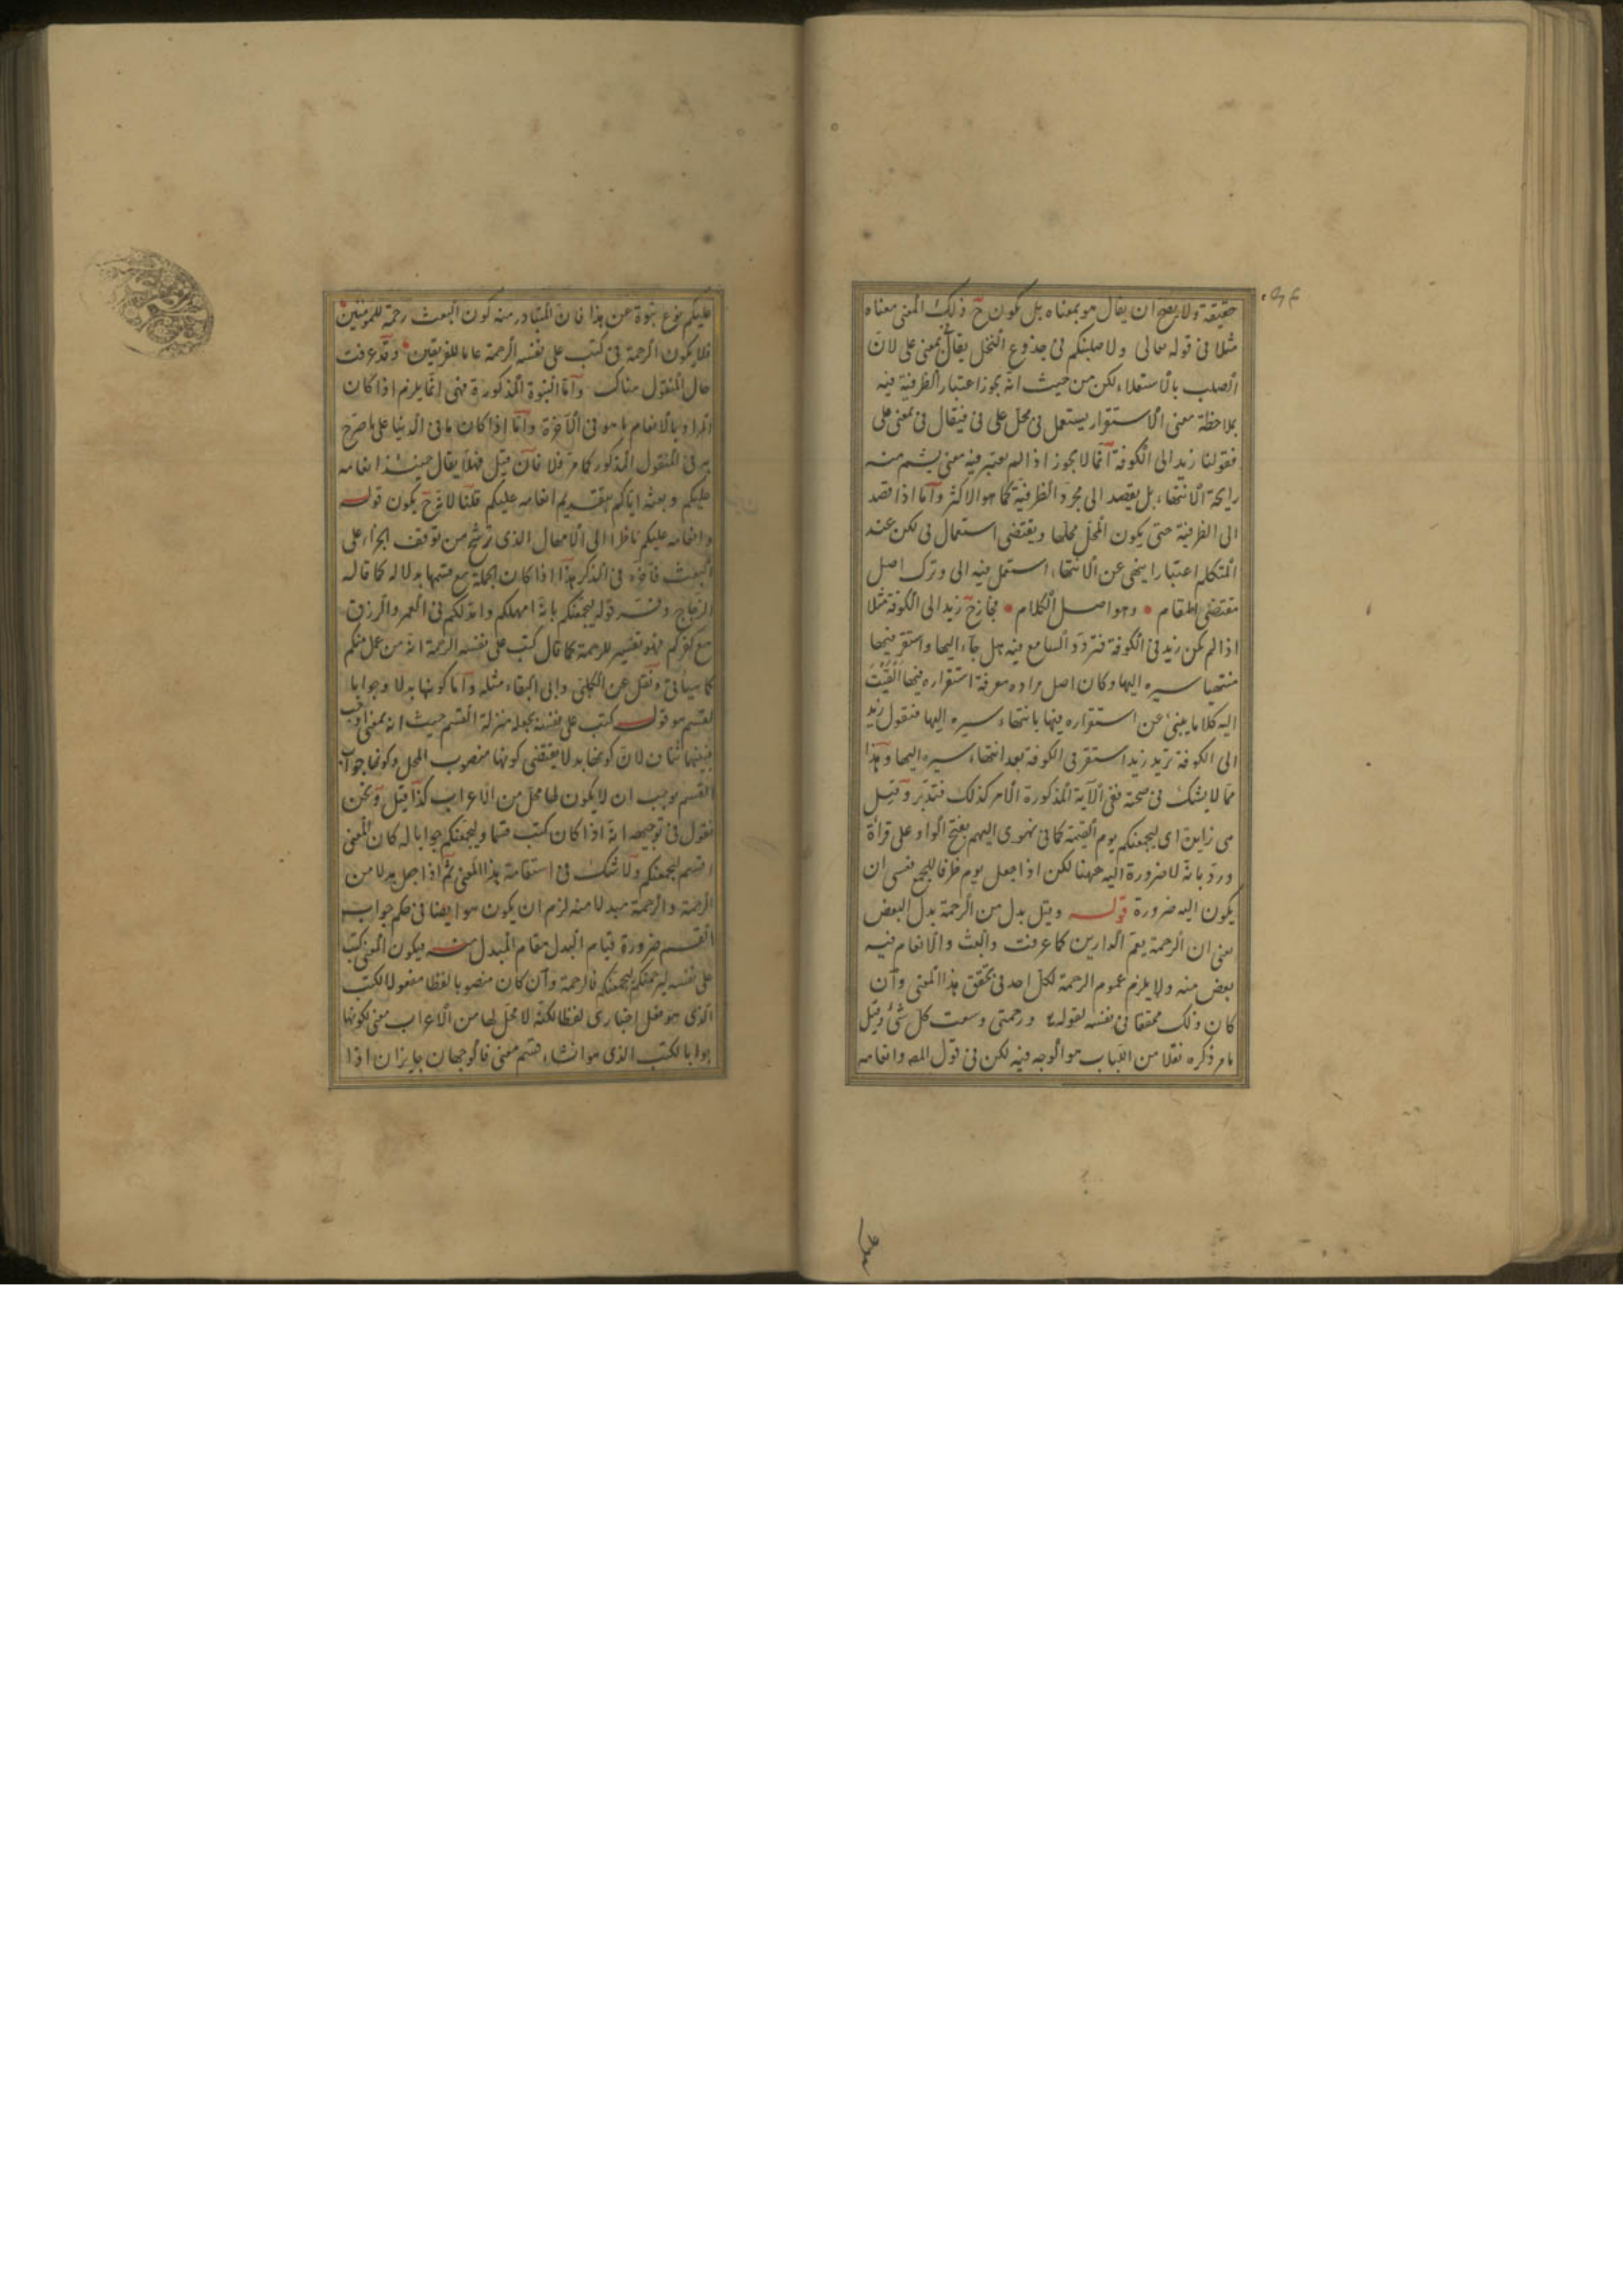 حقيقة ولا يصح ان يقال هو بمعناه بل يكون ح ذلك المعنى معناه
مثلا فى قوله تعالى ولاصلبنكم فى جذوع النخل يقال بمعنى على لان
الصلب بالاستعلاء لكن من حيث انه يجوز اعتبار الظرفية فيه
بملاحظة معنى الاستقرار يستعمل فى محل على فى فيقال فى بمعنى على
فقولنا زيد الى الكوفة انما لا يجوز اذا لم يعتبر فيه معنى يشم منه
رايحة الانتهاء بل يقصد الى مجرد الظرفية كما هو الاكثر واما اذا قصد
الى الظرفية حتى يكون المحل محلها ويقتضى استعمال فى لكن عند
المتكلم اعتبارا ينبئ عن الانتهاء استعمل فيه الى وترك اصل
مقتضى المقام وهو اصل الكلام فجاز ح زيد الى الكوفة مثلا
اذا لم يكن زيد فى الكوفة فتردد السامع فيه هل جاء اليها واستقر فيها
منتهيا سيره اليها وكان اصل مراده معرفة استقراره فيها القيت
اليه كلاما ينبئ عن استقراره فيها بانتهاء سيره اليها فتقول زيد
الى الكوفة تريد زيد استقر فى الكوفة بعد انتهاء سيره اليها وهذا
مما لا يشك فى صحته ففى الآية المذكورة الامر كذلك فتدبر وقيل
هى زايدة اى ليجمعنكم يوم القيمة كما فى تهوى اليهم بفتح الواو على قراءة
ورد بانه لا ضرورة اليه ههنا لكن اذا جعل يوم ظرفا للجمع فعسى ان
يكون اليه ضرورة قوله وقيل بدل من الرحمة بدل البعض
يعنى ان الرحمة يعم الدارين كما عرفت والبعث والانعام فيه
بعض منه ولا يلزم عموم الرحمة لكل احد فى تحقق هذا المعنى وان
كان ذلك محققا فى نفسه لقوله ورحمتى وسعت كل شئ وقيل
ما مر ذكره نقلا من اللباب هو الوجه فيه لكن فى قول المص وانعامه
عليكم نوع نبوة عن هذا فان المتبادر منه كون البعث رحمة للمؤمنين
فلا يكون الرحمة فى كتب على نفسه الرحمة عاما للفريقين وقد عرفت
حال المنقول هناك واما النبوة المذكورة فهى انما يلزم اذا كان
المراد بالانعام ما هو فى الآخرة واما اذا كان ما فى الدنيا على ما صرح
به فى المنقول المذكور كما مر فلا فان قيل فهلا يقال حينئذ انعامه
عليكم وبعثه اياكم بتقديم انعامه عليكم قلنا لانه ح يكون قوله
وانعامه عليكم ناظرا الى الامهال الذى ترشح من توقف الجزاء على
البعث فاخره فى الذكر هذا اذا كان الجملة مع قسمها بدلا له كما قاله
الزجاج وفسر قوله ليجمعنكم بانه امهلكم وامد لكم فى العمر والرزق
مع كفركم فهو تفسير للرحمة كما قال كتب على نفسه الرحمة انه من عمل منكم
كما سياتى ونقل عن الكلبى وابى البقاء مثله واما كونها بدلا وجوابا
لقسم هو قوله كتب على نفسه بجعله منزلة القسم حيث انه بمعنى اوجب
فبينهما تناف لان كونها بدلا يقتضى كونها منصوب المحل وكونها جواب
القسم يوجب ان لا يكون لها محل من الاعراب كذا قيل ونحن
نقول فى توجيهه انه اذا كان كتب قسما وليجمعنكم جوابا له كان المعنى
اقسم ليجمعنكم ولا شك فى استقامة هذا المعنى ثم اذا جعل بدلا من
الرحمة والرحمة مبدلا منه لزم ان يكون هو ايضا فى حكم جواب
القسم ضرورة قيام البدل مقام المبدل منه فيكون المعنى كتب
على نفسه ليرحمنكم ليجمعنكم فالرحمة وان كان منصوبا لفظا مفعولا لكتب
الذى هو فعل اخبارى لفظا لكنه لا محل لها من الاعراب معنى لكونها
جوابا لكتب الذى هو انشاء قسم معنى فالوجهان جايزان اذا